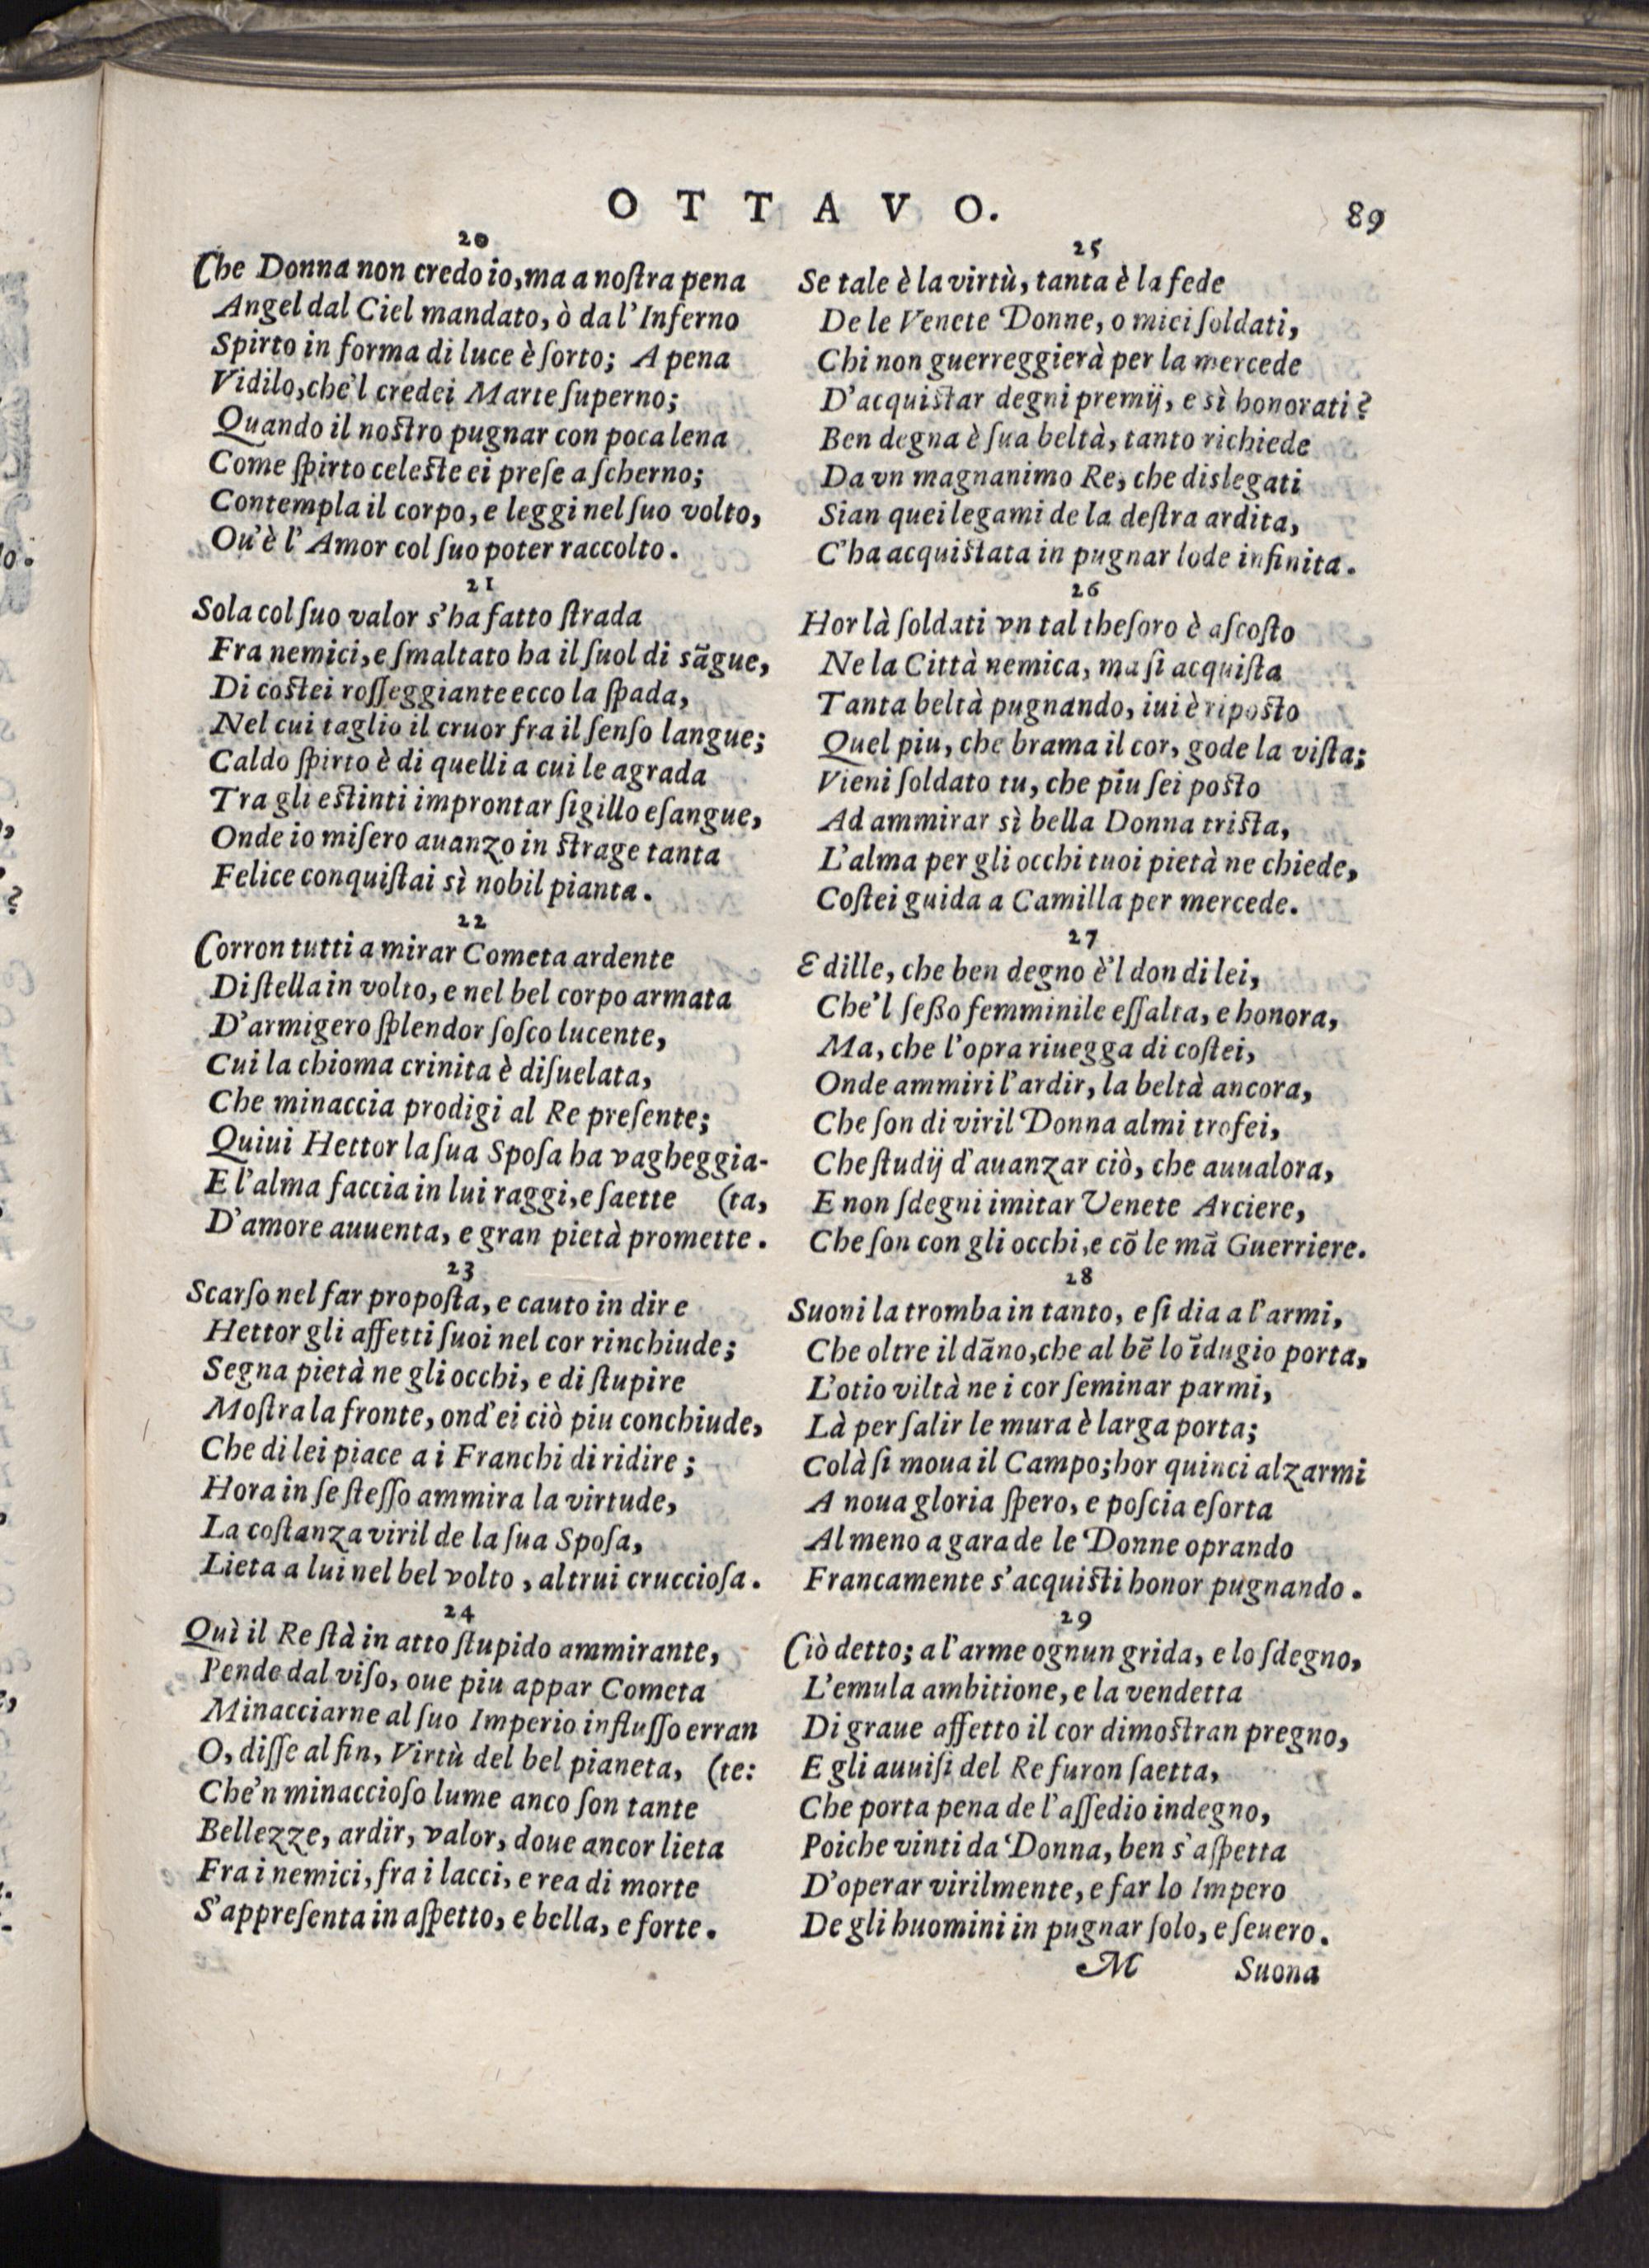 OTTAVO.
89
20
Che Donna non credo io, ma a noſtra pena
Angel dal Ciel mandato, ò da l'Inferno
Spirto in forma di luce è ſorto; A pena
Vidilo, che'l credei Marte ſuperno;
Quando il noſtro pugnar con poca lena
Come ſpirto celeſte ei preſe a ſcherno;
Contempla il corpo, e leggi nel ſuo volto,
Ou'è l'Amor col ſuo poter raccolto.
21
Sola col ſuo valor s'ha fatto ſtrada
Fra nemici, e ſmaltato ha il ſuol di sāgue,
Di coſtei roſſeggiante ecco la ſpada,
Nel cui taglio il cruor fra il ſenſo langue;
Caldo ſpirto è di quelli a cui le agrada
Tra gli eſtinti improntar ſigillo eſangue,
Onde io miſero auanzo in ſtrage tanta
Felice conquiſtai sì nobil pianta.
22
Corron tutti a mirar Cometa ardente
Di ſtella in volto, e nel bel corpo armata
D'armigero ſplendor ſoſco lucente,
Cui la chioma crinita è diſuelata,
Che minaccia prodigi al Re preſente;
Quiui Hettor la ſua Spoſa ha vagheggia-
E l'alma faccia in lui raggi, e ſaette (ta,
D'amore auuenta, e gran pietà promette.
23
Scarſo nel far propoſta, e cauto in dire
Hettor gli affetti ſuoi nel cor rinchiude;
Segna pietà ne gli occhi, e di ſtupire
Moſtra la fronte, ond'ei ciò piu conchiude,
Che di lei piace a i Franchi di ridire;
Hora in ſe ſteſſo ammira la virtude,
La coſtanza viril de la ſua Spoſa,
Lieta a lui nel bel volto, altrui crucciosa.
24
Quì il Re ſtà in atto ſtupido ammirante,
Pende dal viſo, oue piu appar Cometa
Minacciarne al ſuo Imperio influſſo erran
O, diſſe al fin, Virtù del bel pianeta, (te:
Che'n minaccioſo lume anco ſon tante
Bellezze, ardir, valor, doue ancor lieta
Fra i nemici, fra i lacci, e rea di morte
S'appreſenta in aſpetto, e bella, e forte.
25
Se tale è la virtù, tanta è la fede
De le Venete Donne, o miei ſoldati,
Chi non guerreggierà per la mercede
D'acquiſtar degni premij, e sì honorati?
Ben degna è ſua beltà, tanto richiede
Da vn magnanimo Re, che dislegati
Sian quei legami de la deſtra ardita,
C'ha acquiſtata in pugnar lode infinita.
26
Hor là ſoldati vn tal theſoro è aſcoſto
Ne la Città nemica, ma ſi acquiſta
Tanta beltà pugnando, iui è ripoſto
Quel piu, che brama il cor, gode la viſta;
Vieni ſoldato tu, che piu ſei poſto
Ad ammirar sì bella Donna triſta,
L'alma per gli occhi tuoi pietà ne chiede,
Coſtei guida a Camilla per mercede.
27
E dille, che ben degno è'l don di lei,
Che'l ſeßo femminile eſſalta, e honora,
Ma, che l'opra riuegga di coſtei,
Onde ammiri l'ardir, la beltà ancora,
Che ſon di viril Donna almi trofei,
Che ſtudij d'auanzar ciò, che auualora,
E non ſdegni imitar Venete Arciere,
Che ſon con gli occhi, e cō le mā Guerriere.
28
Suoni la tromba in tanto, e ſi dia a l'armi,
Che oltre il dāno, che al bē lo īdugio porta,
L'otio viltà ne i cor ſeminar parmi,
Là per ſalir le mura è larga porta;
Colà ſi moua il Campo; hor quinci alzarmi
A noua gloria ſpero, e poſcia eſorta
Al meno a gara de le Donne oprando
Francamente s'acquiſti honor pugnando.
29
Ciò detto; a l'arme ognun grida, e lo ſdegno,
L'emula ambitione, e la vendetta
Di graue affetto il cor dimoſtran pregno,
E gli auuiſi del Re furon ſaetta,
Che porta pena de l'aſſedio indegno,
Poiche vinti da Donna, ben s'aſpetta
D'operar virilmente, e far lo Impero
De gli huomini in pugnar ſolo, e ſeuero.
M Suona